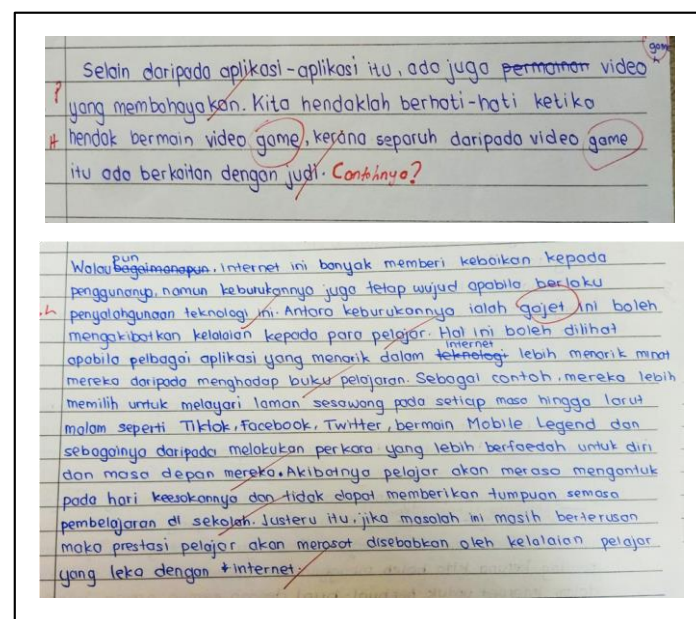 Selain daripada aplikasi-aplikasi itu, ada juga permainan video game
? yang membahayakan. Kita hendaklah berhati-hati ketika
H hendak bermain video game, kerana separuh daripada video game
itu ada berkaitan dengan judi. Contohnya?
Walaubagaimanapun pun, Internet ini banyak memberi kebaikan kepada
penggunanya, namun keburukannya juga tetap wujud apabila berlaku
penyalahgunaan teknologi ini. Antara keburukannya ialah gajet ini boleh
mengakibatkan kelalaian kepada para pelajar. Hal ini boleh dilihat
apabila pelbagai aplikasi yang menarik dalam teknologi internet lebih menarik minat
mereka daripada menghadap buku pelajaran. Sebagai contoh, mereka lebih
memilih untuk melayari laman sesawang pada setiap masa hingga larut
malam seperti Tiktok, Facebook, Twitter, bermain Mobile Legend dan
sebagainya daripada melakukan perkara yang lebih berfaedah untuk diri
dan masa depan mereka. Akibatnya pelajar akan merasa mengantuk
pada hari keesokannya dan tidak dapat memberikan tumpuan semasa
pembelajaran di sekolah. Justeru itu, jika masalah ini masih berterusan
maka prestasi pelajar akan merosot disebabkan oleh kelalaian pelajar
yang leka dengan internet.